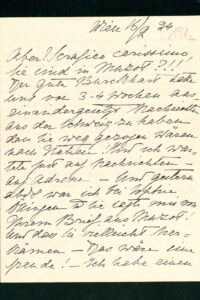 Wien 16/9 24
Aber Serafico carissimo
Sie sind in Muzot?!!
Der gute Burckhart hatte
uns vor 3-4 Wochen aus
einandergesetzt Nachricht
aus der Schweiz zu haben
dass Sie weg gezogen wären
nach Italien! Und ich war
tete fort auf Nachrichten –
auf Adresse – Und gestern
abend war ich bei Sophie
und Sie sagte mir von
Ihrem Brief aus Muzot!
Und dass Sie vielleicht her
kämen – Das wäre eine
Freude! – Ich habe einen